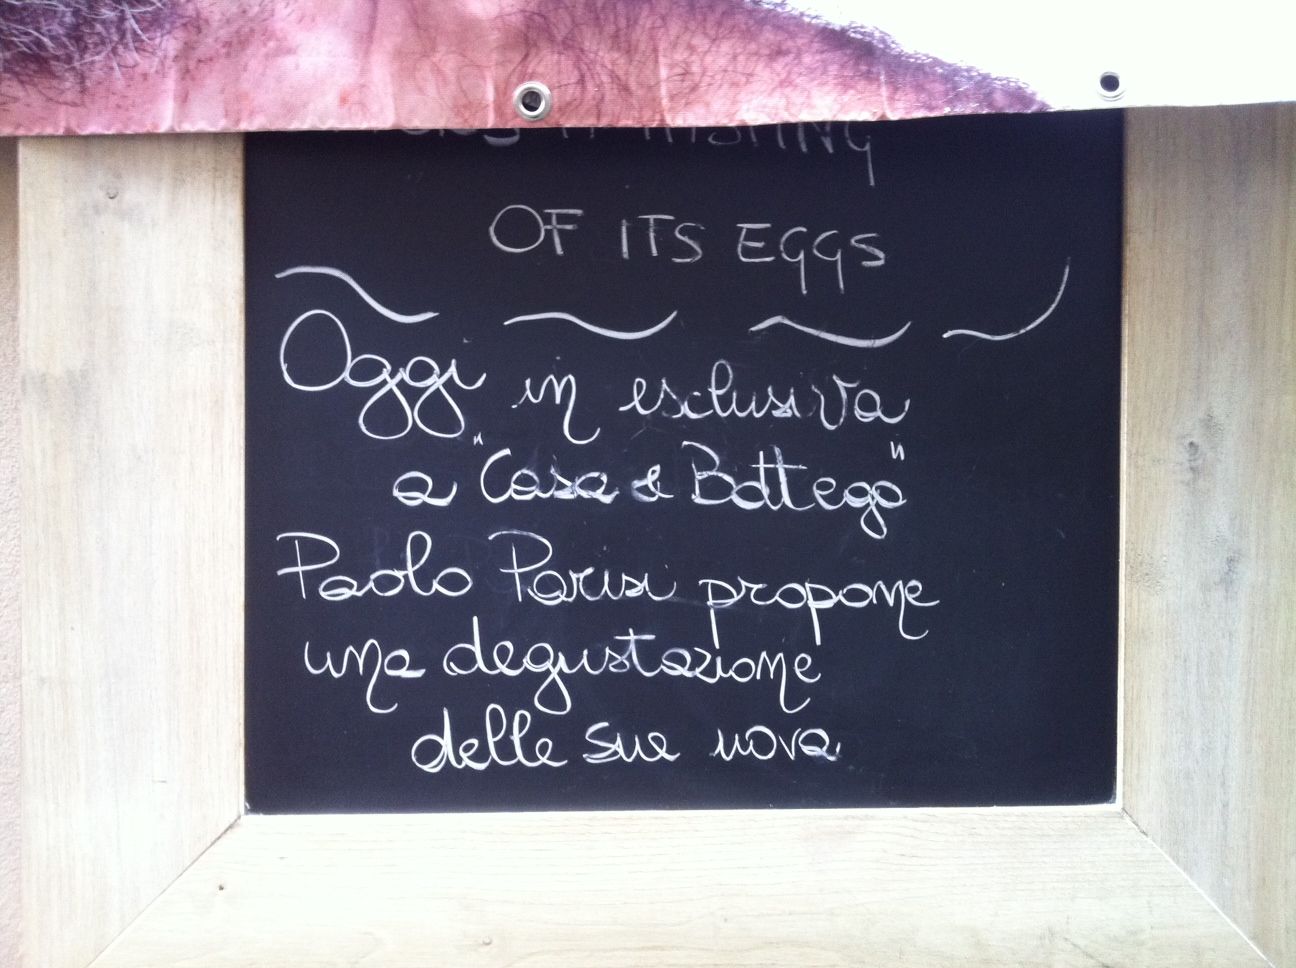 OF ITS EGGS
Oggi in esclusiva
a "Casa & Bottega"
Paolo Parisi propone
una degustazione
delle sue uova